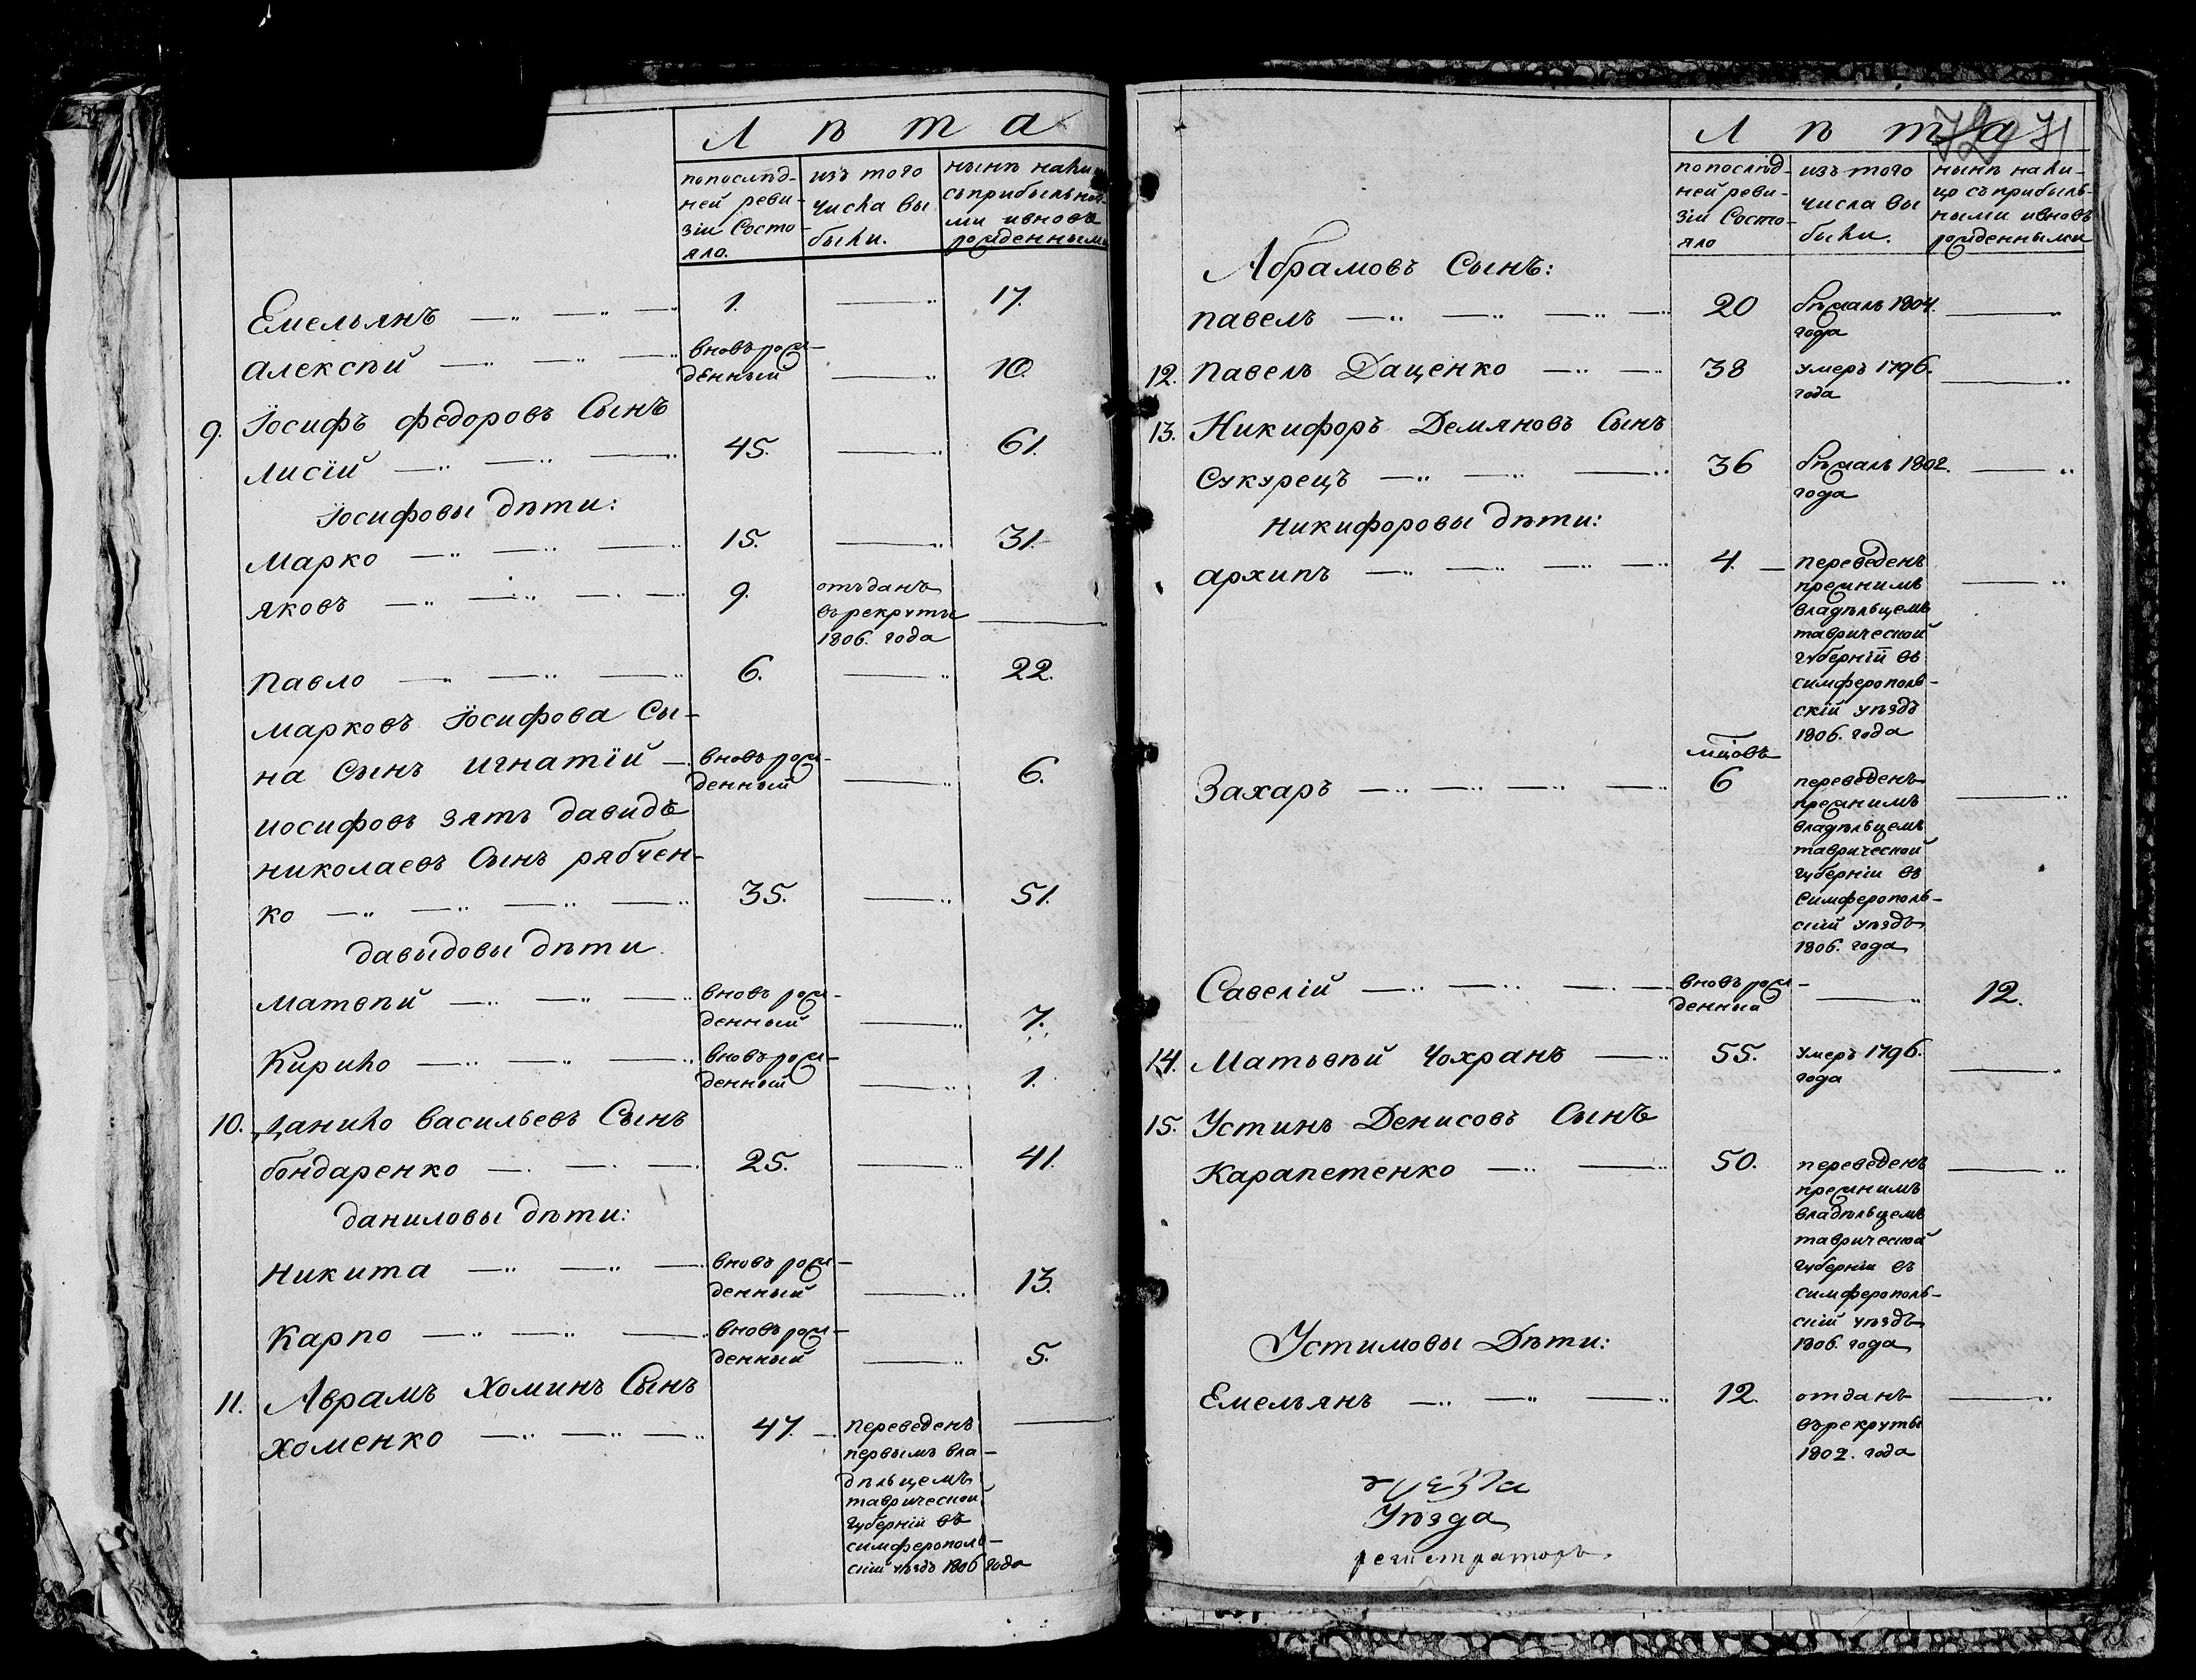 Лѣта
попослѣд-
ней реви-
зіи Состо-
яло.
изъ того
числа вы
были.
нынѣ нали
съприбыльны-
ми ивновь
рожденными
Емельянъ 1. 17.
вновь рож-
Алексѣй денный 10.
9. Іосифъ Федоровъ Сынъ
Лисій 45. 61.
Іосифовы дѣти:
Марко 15. 31.
Яковъ 9. отъданъ
въ рекруты
1806. года
Павло 6. 22.
Марковъ Іосифова Сы-
на Сынъ Игнатій вновь рож- 6.
денный
Иосифовъ зять Давидъ
Николаевъ Сынъ Рябчен-
ко 35. 51.
Давыдовы дѣти
Матвѣй вновь рож-
денный 7.
Кирило вновь рож-
денный 1.
10. Данило Васильевъ Сынъ
Бондаренко 25. 41.
Даниловы дѣти:
Никита вновь рож-
денный 13.
Карпо вновь рож-
денный 5.
11. Аврамъ Хоминъ Сынъ
Хоменко 47. переведенъ
первымъ вла-
дѣльцемъ
таврической
губерніи въ
симферополь-
скій уѣздъ 1806 года
Лѣта
72 71
попослѣд-
ней реви-
зіи Состо-
яло
изъ того
числа вы
были.
нынѣ нали-
цо съприбыль-
ными ивновь
рожденными
Абрамовъ Сынъ:
Павелъ 20 бѣжалъ 1804.
года
12. Павелъ Даценко 38 умеръ 1796.
года
13. Никифоръ Демяновъ Сынъ
Сукурецъ 36 бѣжалъ 1802.
года
Никифоровы дѣти:
Архипъ 4. переведенъ
прежнимъ
владѣльцемъ
таврической
губерніи въ
симферополь-
скій уѣздъ
1806. года
мцовъ
Захаръ 6 переведенъ
прежнимъ
владѣльцемъ
таврической
губерніи въ
Симферополь-
скій уѣздъ
1806. года
Савелій вновь рож-
денный 12.
14. Матьвѣй Чохранъ 55. умеръ 1796.
года
15. Устинъ Денисовъ Сынъ
Карапетенко 50. переведенъ
прежнимъ
владѣльцемъ
таврической
губерніи въ
симферополь-
скій уѣздъ
1806. года
Устимовы Дѣти:
Емельянъ 12. отданъ
въ рекруты
1802. года
Уѣзда
регистраторъ.